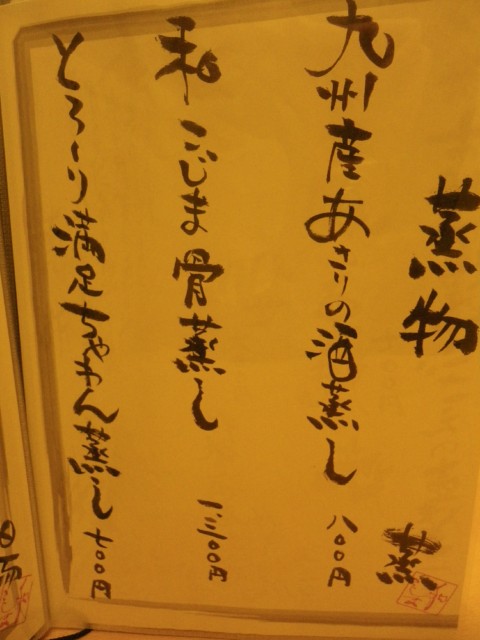 蒸物
九州産あさりの酒蒸し 八〇〇円
こじま骨蒸し 一、三〇〇円
とろ〜り満足ちゃわん蒸し 七〇〇円
蒸